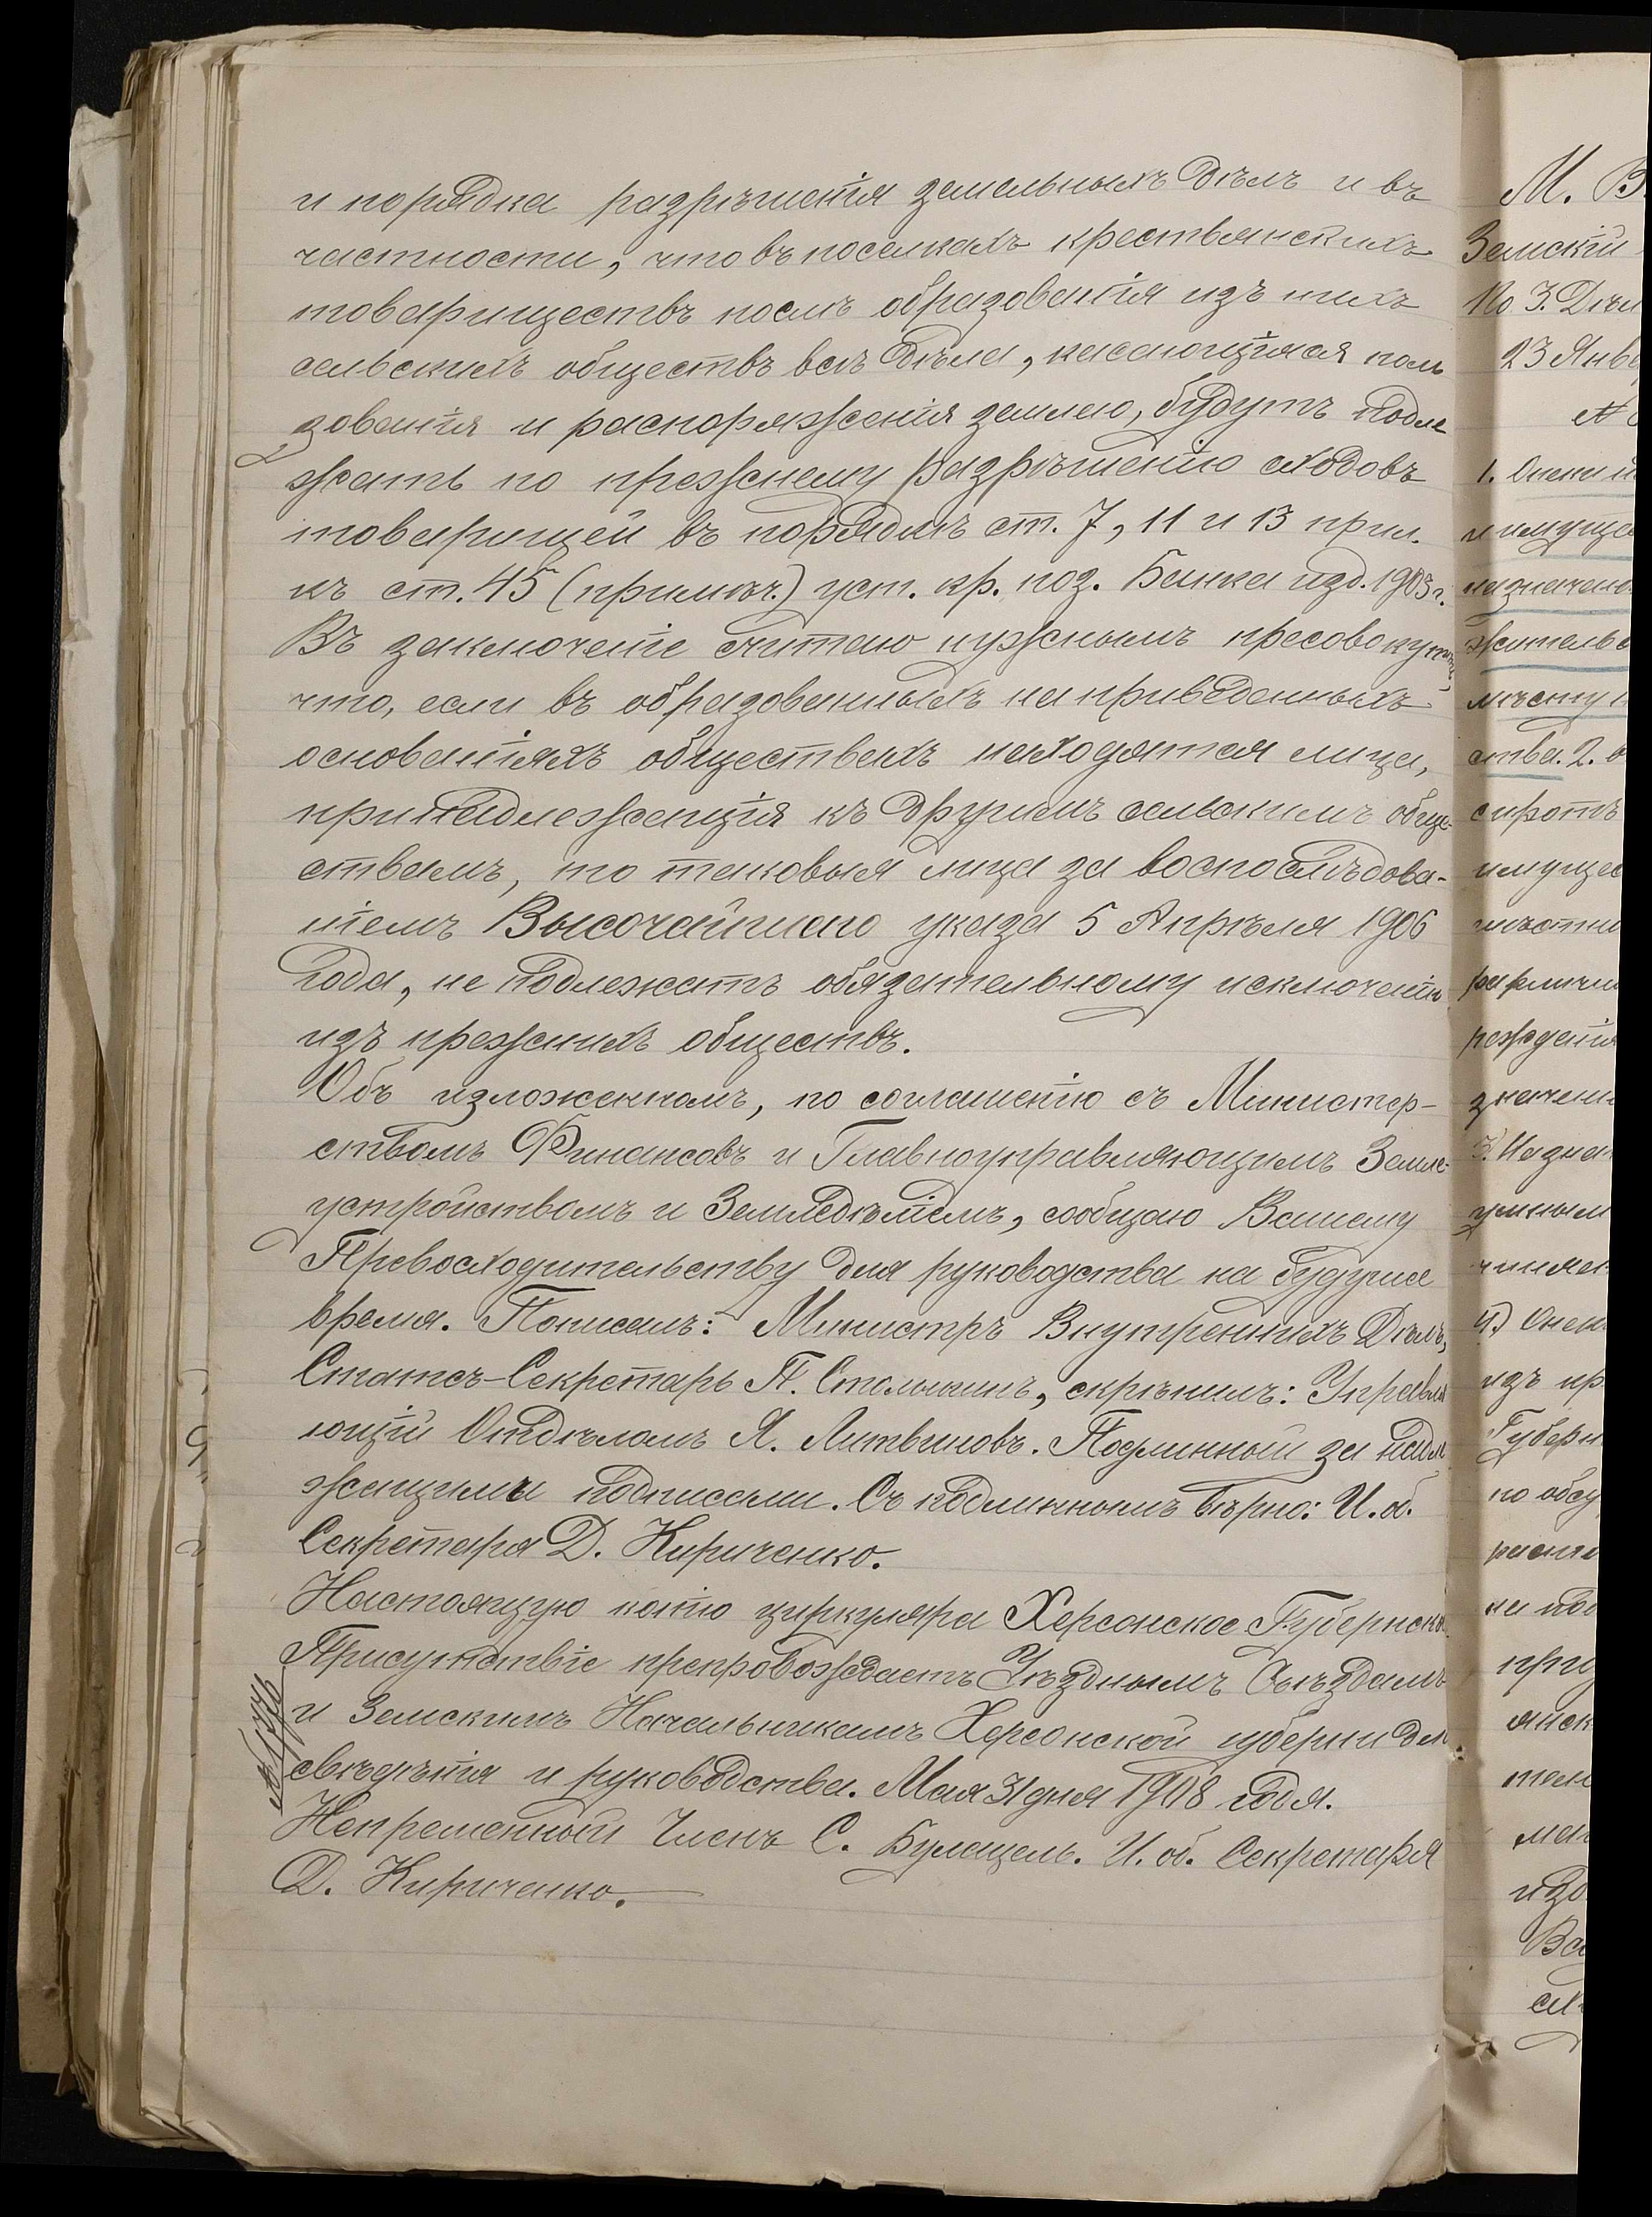 и порядка разрѣшенія земельныхъ дѣлъ и въ
частности, что въ поселкахъ крестьянскихъ
товариществъ послѣ образованія изъ нихъ
сельскихъ обществъ всѣ дѣла, касающіяся поль
зованія и распоряженія землею, будутъ подле
жать по прежнему разрѣшенію сходовъ
товарищей въ порядкѣ ст. 7, 11 и 13 прил.
къ ст. 45 (примѣч.) уст. кр. поз. Банка изд. 1903 г.
Въ заключеніе считаю нужнымъ пресовокупить,
что, если въ образованныхъ на приведенныхъ
основаніяхъ обществахъ находятся лица,
принадлежащія къ другимъ сельскимъ обще-
ствамъ, то таковыя лица за воспослѣдова-
ніемъ Высочайшаго указа 5 Апрѣля 1906
года, не подлежатъ обязательному исключенію
изъ прежнихъ обществъ.
Объ изложенномъ, по соглашенію съ Министер-
ствомъ Финансовъ и Главноуправляющимъ Земле-
устройствомъ и Земледѣліемъ, сообщаю Вашему
Превосходительству для руководства на будущее
время. Пописалъ: Министръ Внутреннихъ Дѣлъ,
Статсъ-Секретарь П. Столыпинъ, скрѣпилъ: Управля
ющій Отдѣломъ Я. Литвиновъ. Подлинный за надле
жащими подписями. Съ подлиннымъ вѣрно: И. об.
Секретаря Д. Кириченко.
Настоящую копію циркуляра Херсонское Губернское
Присутствіе препровождаетъ Уѣзднымъ Съѣздамъ
и Земскимъ Начальникамъ Херсонской губерніи для
свѣдѣнія и руководства. Мая 31 дня 1908 года.
Непременный Членъ С. Булацель. И. об. Секретаря
Д. Кириченко.
М. В
Земскій
По 3. Дѣл
23 Янва
1. Опеки
и имуще
назначен
жительс
мѣсту
ства. 2.
сиротъ
имущес
3. Назна
4.) Опек
изъ пр
Губерн
по обсу